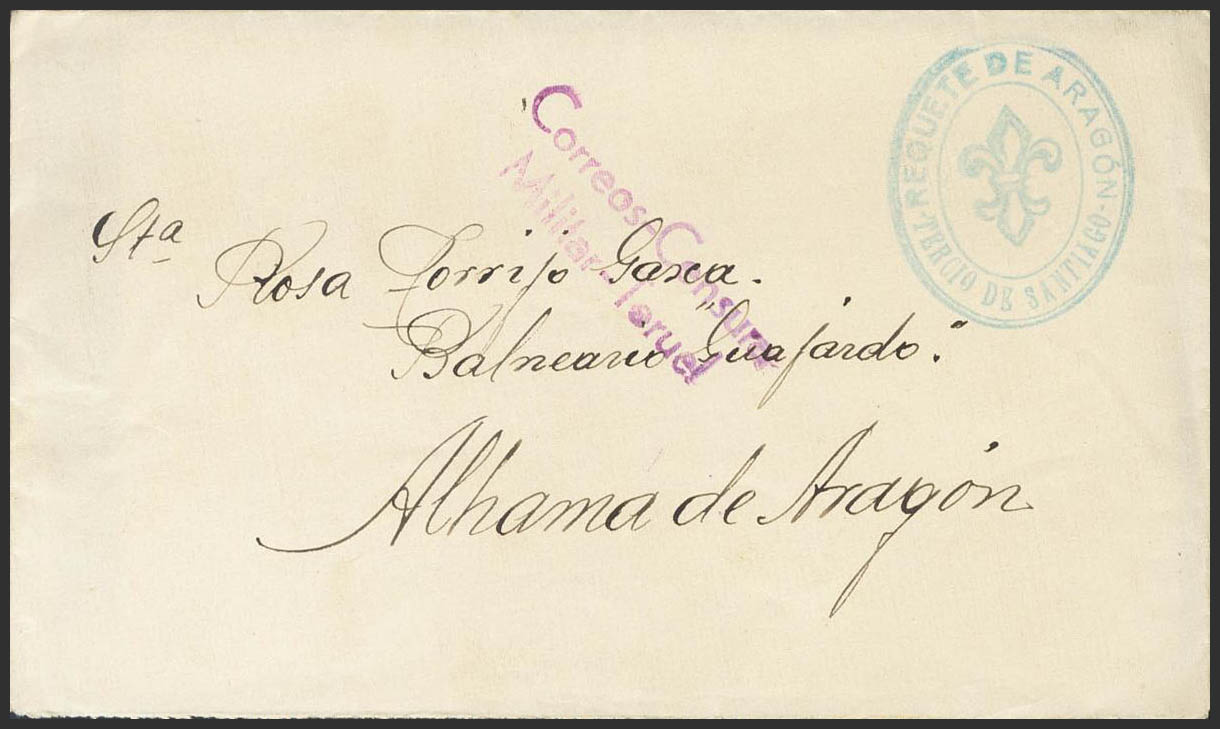 REQUETE DE ARAGÓN
TERCIO DE SANTIAGO
Correos-Censura
Militar-Teruel
Sta
Rosa Torrijo Garcea.
Balneario "Guajardo".
Alhama de Aragón